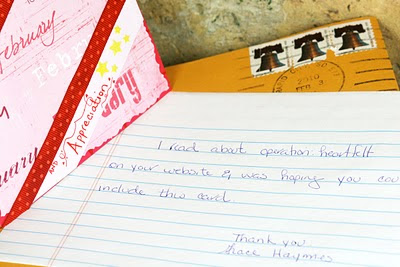 February
Febr
Appreciation
2010
FEB
I read about operation: heartfelt
on your website & was hoping you cou
include this card.
Thank you
Grace Haymes